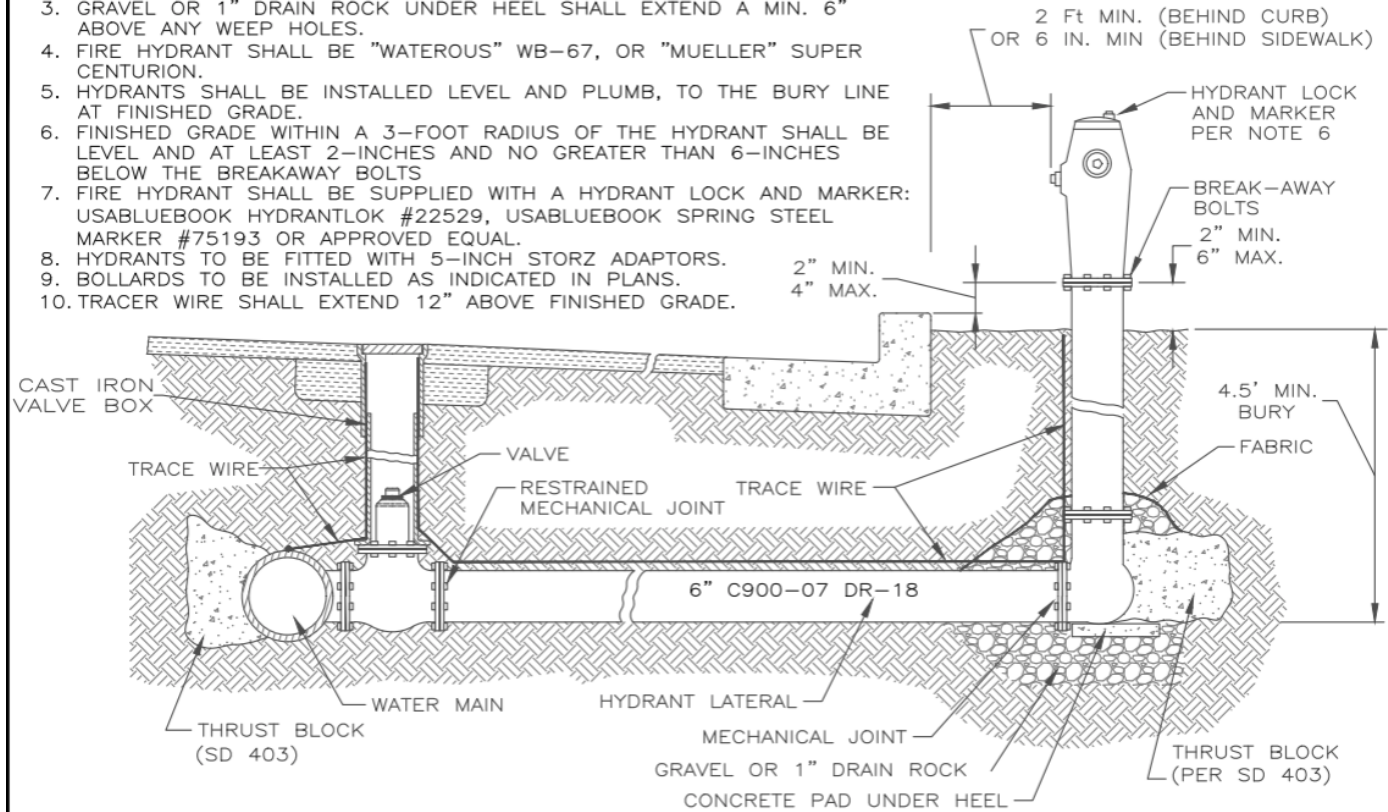 3. GRAVEL OR 1" DRAIN ROCK UNDER HEEL SHALL EXTEND A MIN. 6"
ABOVE ANY WEEP HOLES.
4. FIRE HYDRANT SHALL BE "WATEROUS" WB-67, OR "MUELLER" SUPER
CENTURION.
5. HYDRANTS SHALL BE INSTALLED LEVEL AND PLUMB, TO THE BURY LINE
AT FINISHED GRADE.
6. FINISHED GRADE WITHIN A 3-FOOT RADIUS OF THE HYDRANT SHALL BE
LEVEL AND AT LEAST 2-INCHES AND NO GREATER THAN 6-INCHES
BELOW THE BREAKAWAY BOLTS
7. FIRE HYDRANT SHALL BE SUPPLIED WITH A HYDRANT LOCK AND MARKER:
USABLUEBOOK HYDRANTLOK #22529, USABLUEBOOK SPRING STEEL
MARKER #75193 OR APPROVED EQUAL.
8. HYDRANTS TO BE FITTED WITH 5-INCH STORZ ADAPTORS.
9. BOLLARDS TO BE INSTALLED AS INDICATED IN PLANS.
10. TRACER WIRE SHALL EXTEND 12" ABOVE FINISHED GRADE.
2 Ft MIN. (BEHIND CURB)
OR 6 IN. MIN (BEHIND SIDEWALK)
HYDRANT LOCK
AND MARKER
PER NOTE 6
BREAK-AWAY
BOLTS
2" MIN.
6" MAX.
2" MIN.
4" MAX.
CAST IRON
VALVE BOX
4.5' MIN.
BURY
FABRIC
TRACE WIRE
VALVE
RESTRAINED
MECHANICAL JOINT
TRACE WIRE
6" C900-07 DR-18
WATER MAIN
HYDRANT LATERAL
THRUST BLOCK
(SD 403)
MECHANICAL JOINT
GRAVEL OR 1" DRAIN ROCK
CONCRETE PAD UNDER HEEL
THRUST BLOCK
(PER SD 403)